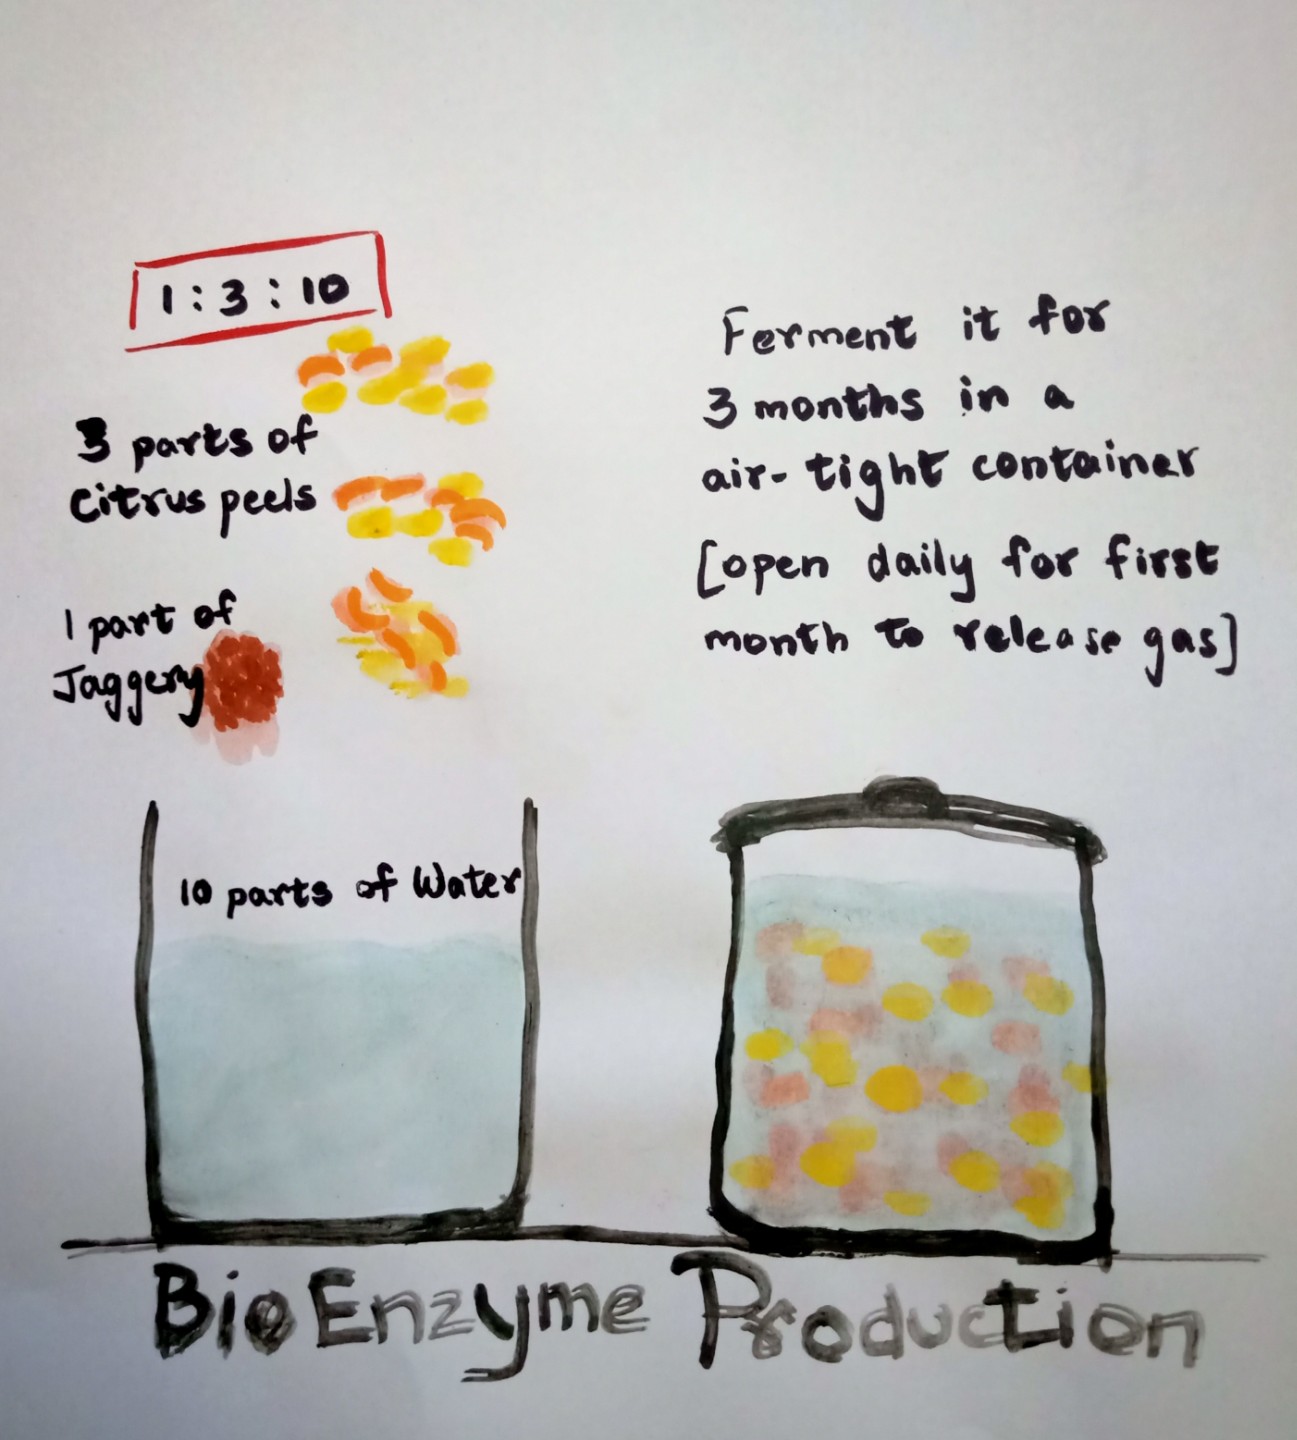 1 : 3 : 10
3 parts of
citrus peels
1 part of
Jaggery
10 parts of Water
Ferment it for
3 months in a
air-tight container
[open daily for first
month to release gas]
Bio Enzyme Production